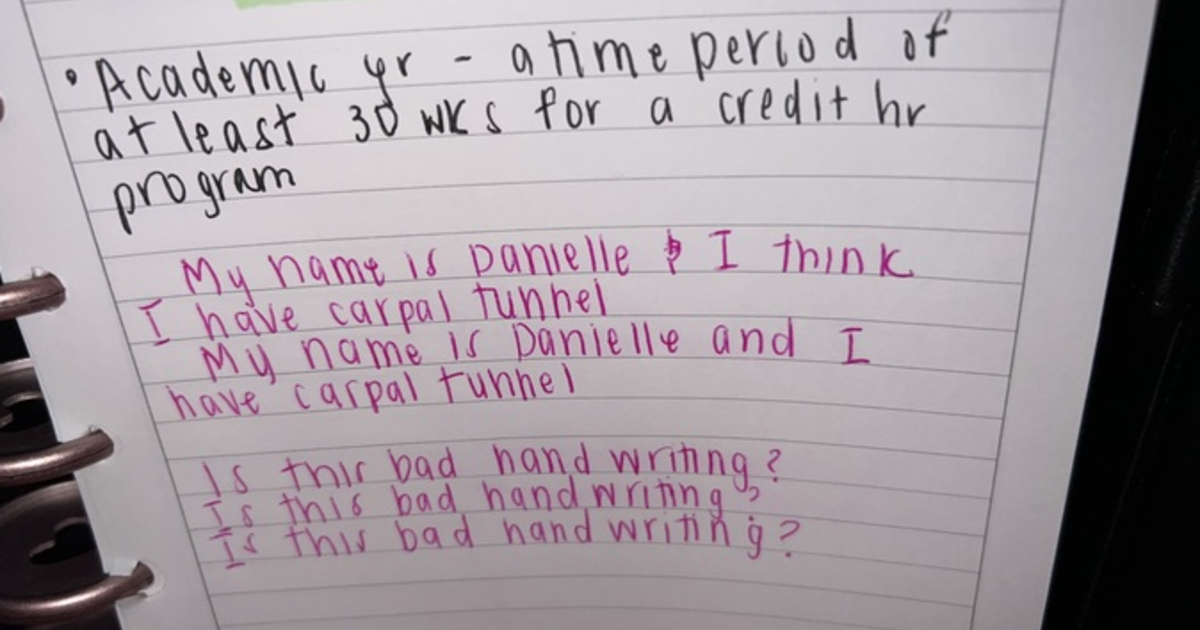 • Academic yr - a time period of
at least 30 wks for a credit hr
program
My name is Danielle & I think
I have carpal tunnel
My name is Danielle and I
have carpal tunnel
Is this bad hand writing?
Is this bad hand writing?
Is this bad hand writing?